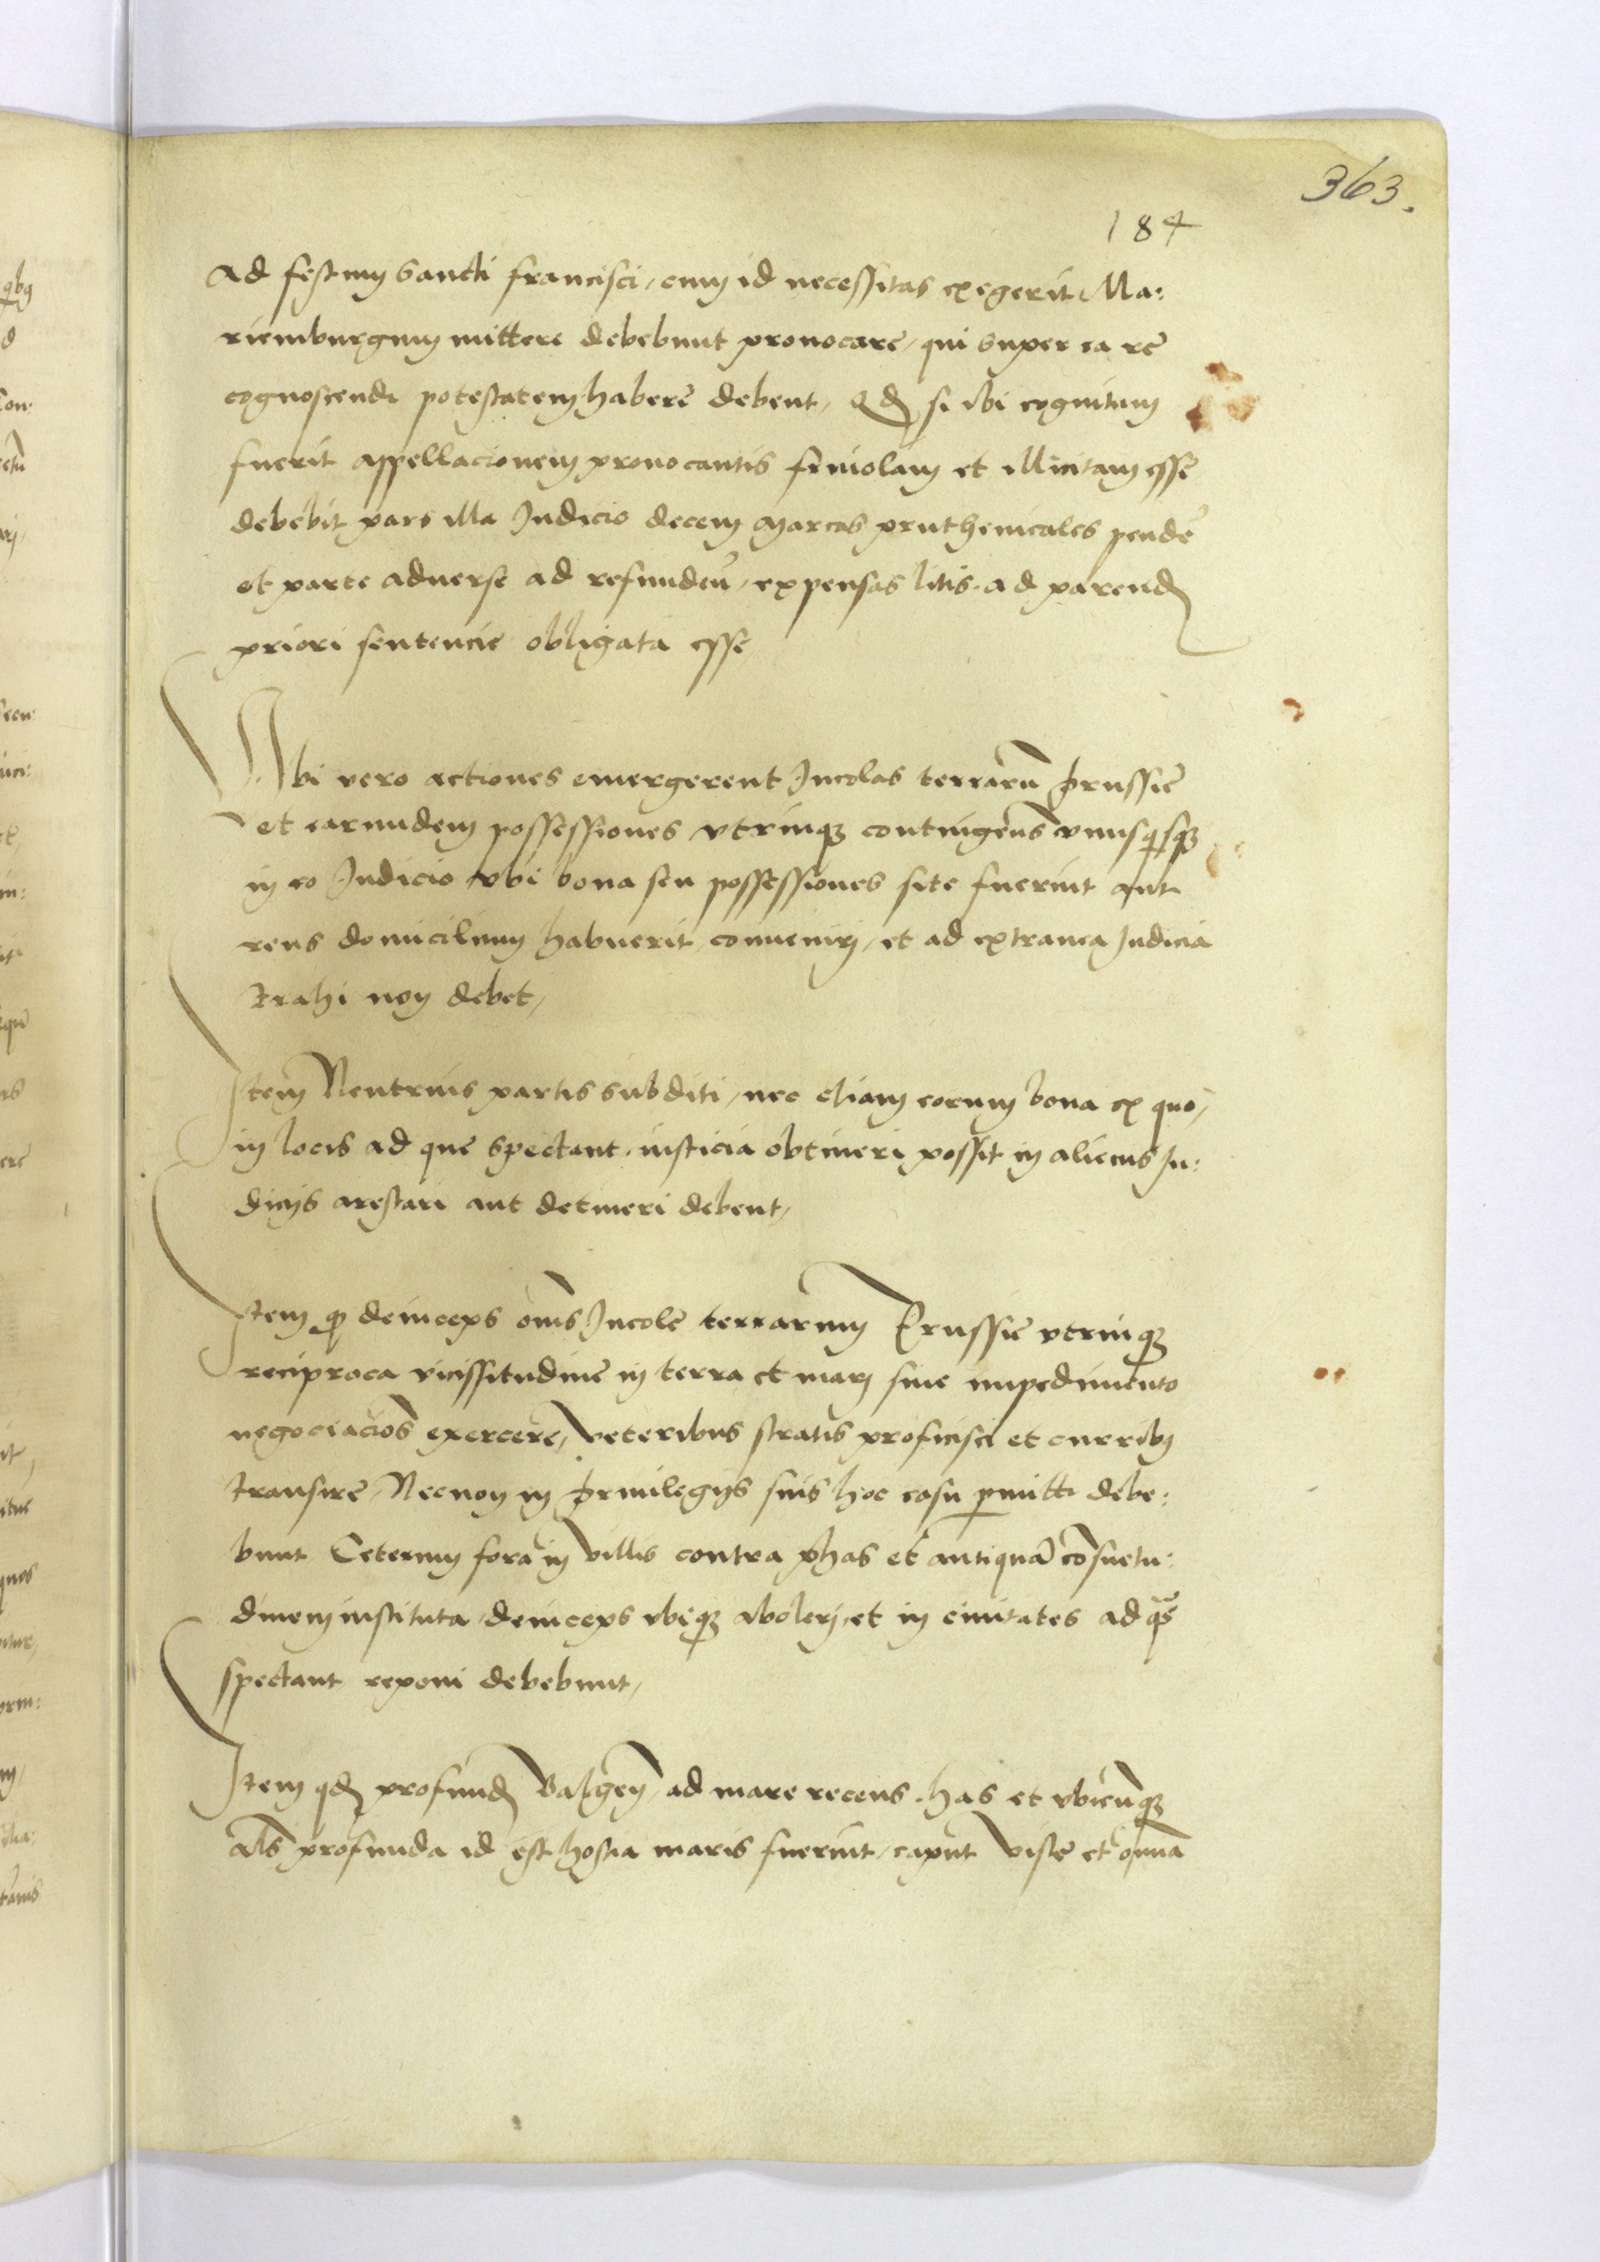 363.
184
Ad festum Sancti Francisci, cum id necessitas exegerit Ma:
riemburgum mittere debebunt prouocare, qui super ea re
cognoscendi potestatem habere debent, Qd si ibi cognitum
fuerit appellacionem prouocantis friuolam et illicitam esse
debebit pars illa Iudicio decem Marcas pruthenicales pendere
et parte aduerse ad refundend expensas litis ad parend
priori sentencie obligata esse
Vbi vero actiones emergerent Incolas terrarū Prussie
et earundem possessiones vtrinq contingens vnusqisq
in eo Iudicio vbi bona seu possessiones site fuerint aut
reus domicilium habuerit conuenirj, et ad extranea Iudicia
trahi non debet,
Item Neutrius partis subditi, nec etiam eorum bona ex quo,
in locis ad que spectant iusticia obtineri possit in alienis Iu:
dicijs arestari aut detineri debent,
Item qp deinceps oms Incole terrarum Prussie vtrinq
reciproca vicissitudine in terra et marj sine impedimento
negociacios exercere, veteribus stratis proficisci et curribq
transire, Necnon in priuilegijs suis hoc casu pmitti debe:
bunt Ceterum fora in villis contra phas et antiquā cōsuetu:
dinem instituta deinceps vbiq abolerj et in ciuitates ad qs
spectant reponi debebunt,
Item qd profund Balgen ad mare recens has et vbicunq
als profunda id est hostia maris fuerint, caput viste et omnia